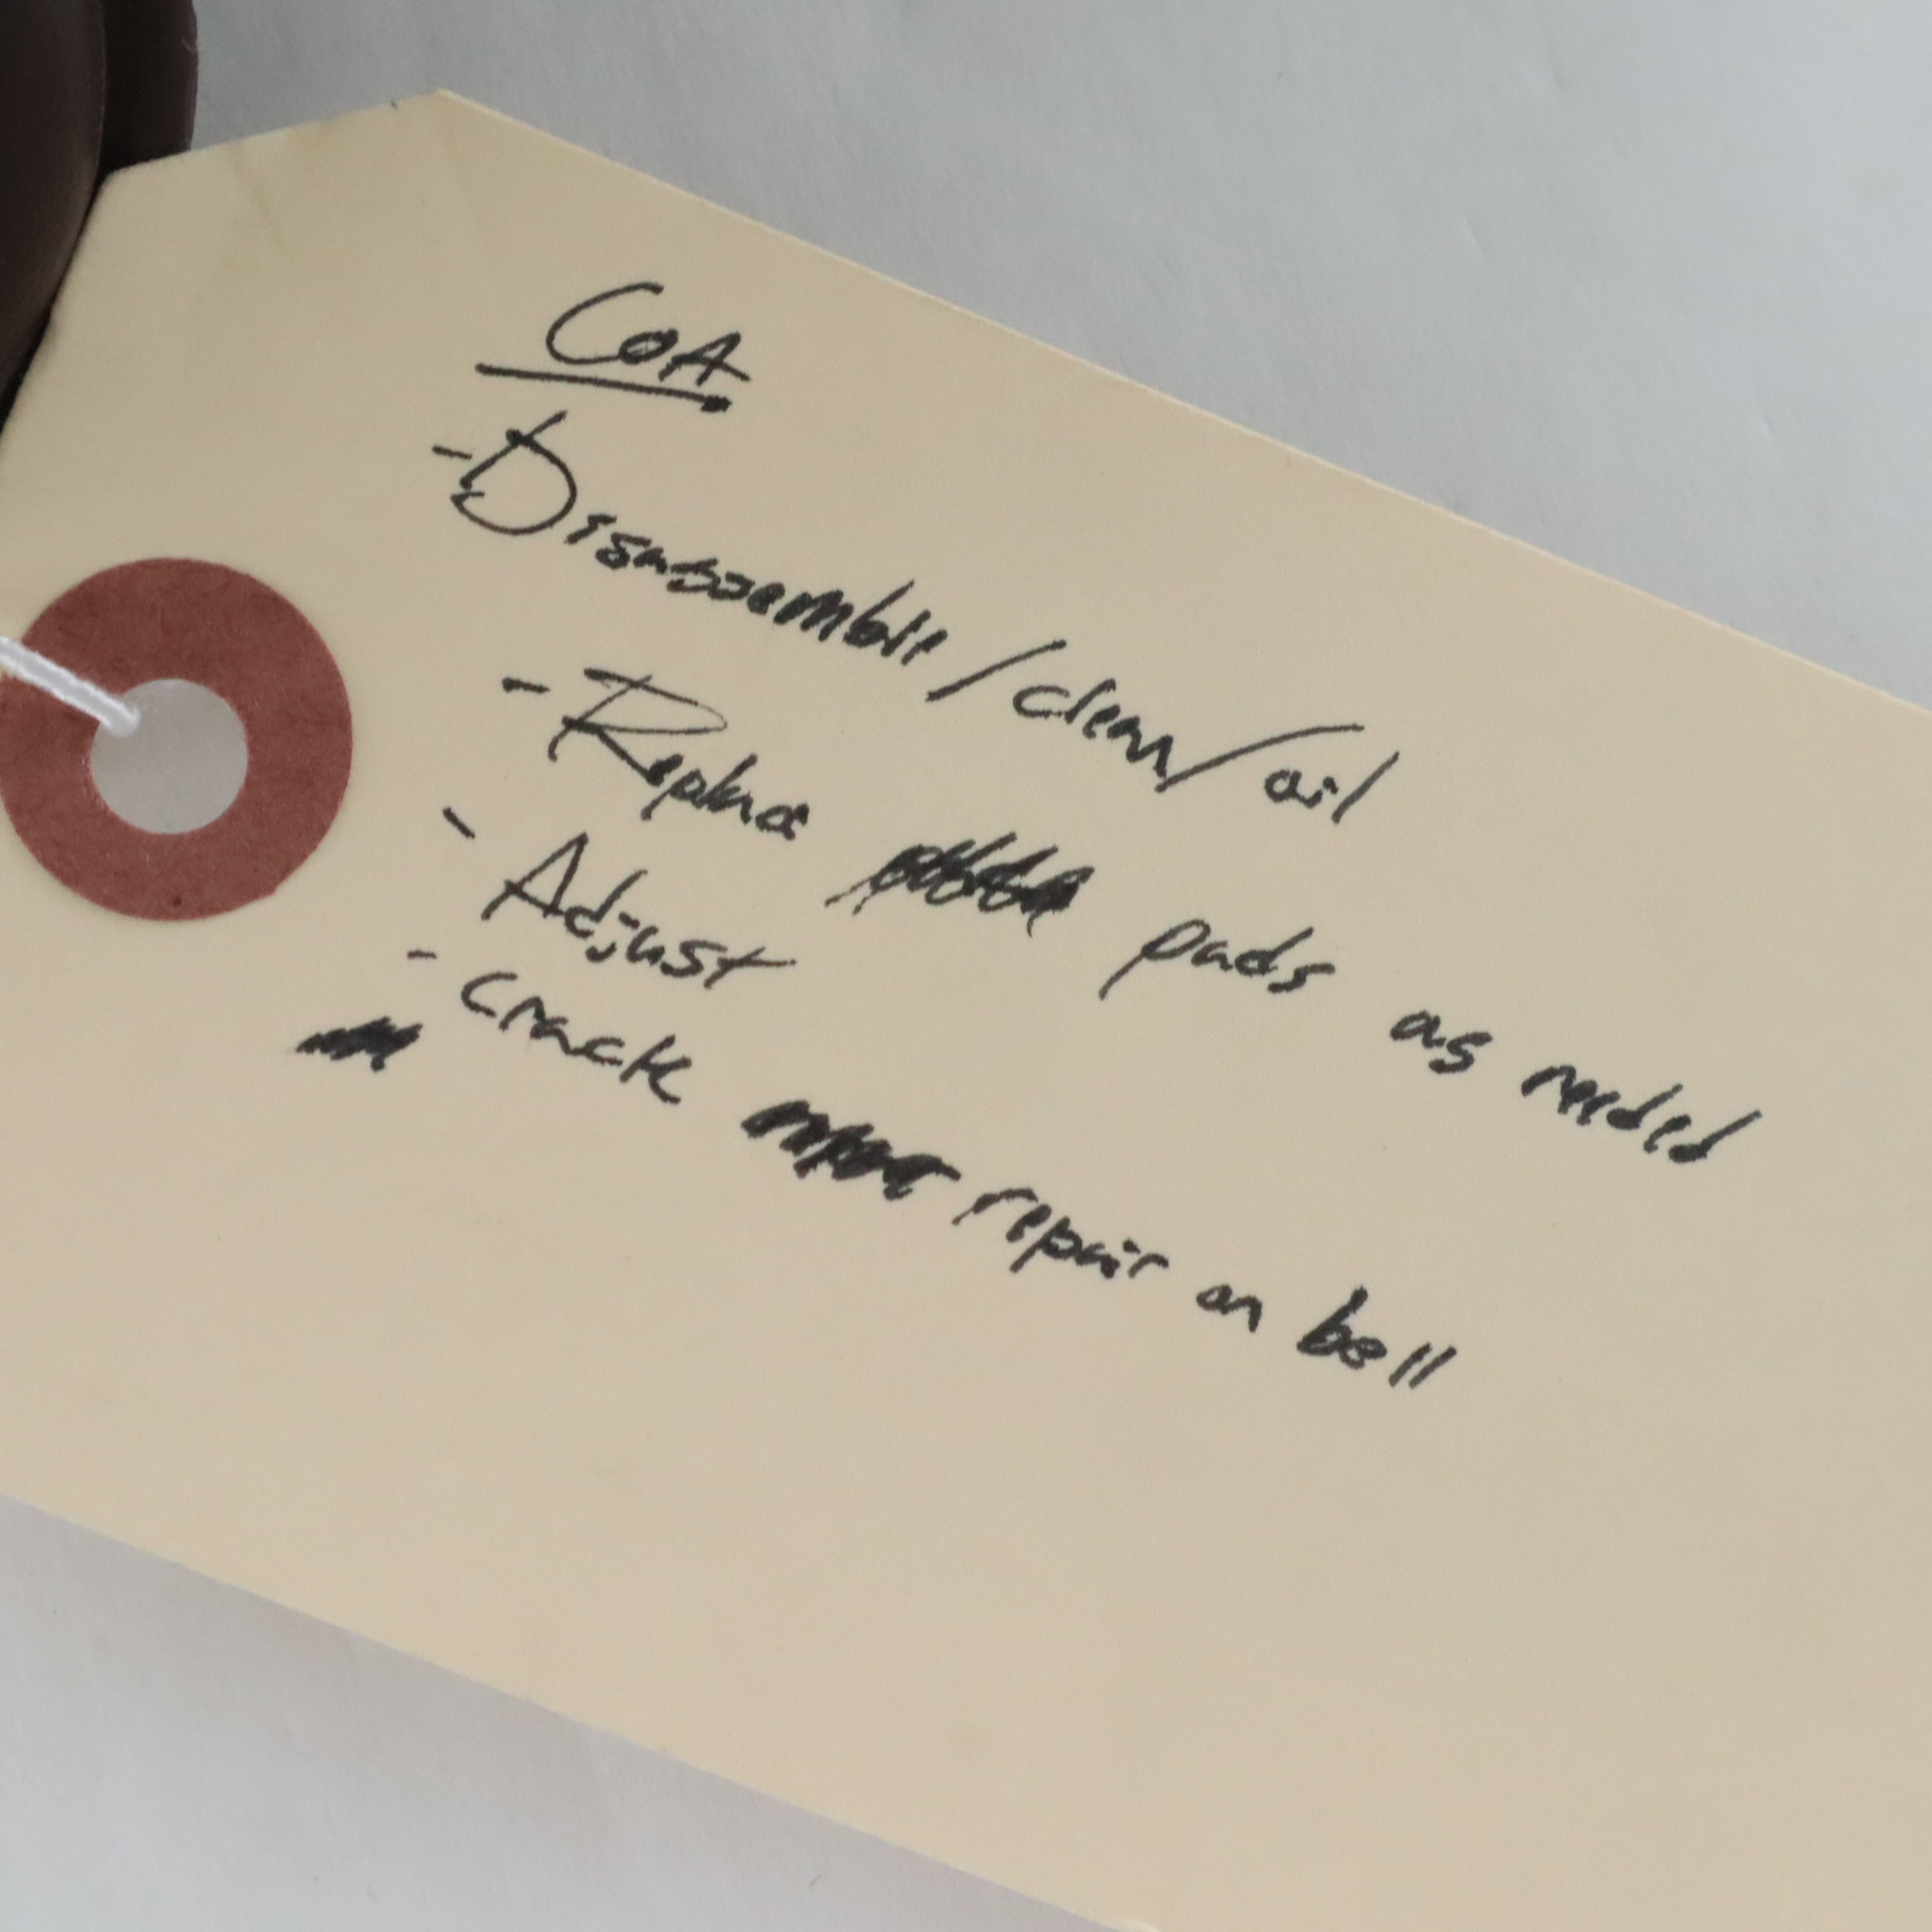 COA
- Disassemble/clean/oil
- Replace pads as needed
- Adjust
- crack repair on bell